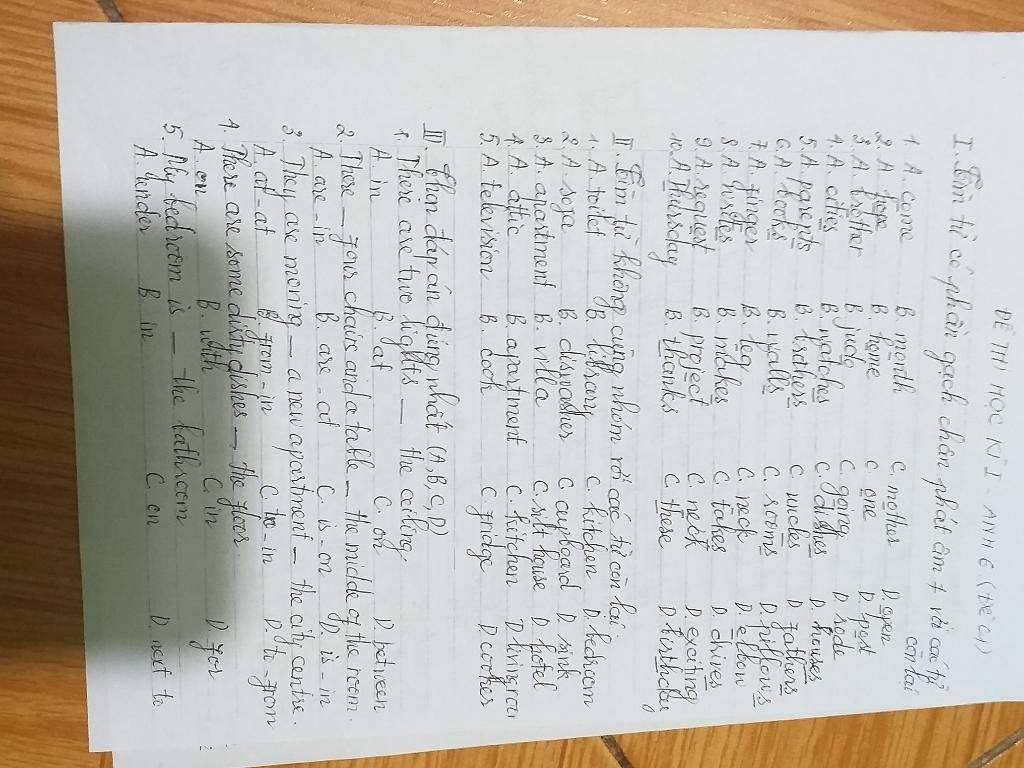 ĐỀ THI HỌC KÌ I - ANH 6 (ĐỀ 01)
I. Tìm từ có phần gạch chân phát âm ≠ với các từ còn lại
1. A. come B. month C. mother D. open
2. A. hope B. home C. one D. post
3. A. brother B. judo C. going D. soda
4. A. cities B. watches C. dishes D. houses
5. A. parents B. brothers C. uncles D. fathers
6. A. books B. walls C. rooms D. pillows
7. A. finger B. leg C. neck D. elbow
8. A. hustes B. makes C. takes D. drives
9. A. request B. project C. neck D. exciting
10. A. Thursday B. thanks C. these D. birthday
II. Tìm từ không cùng nhóm với các từ còn lại
1. A. toilet B. library C. kitchen D. bedroom
2. A. sofa B. dishwasher C. cupboard D. sink
3. A. apartment B. villa C. stilt house D. hotel
4. A. attic B. apartment C. kitchen D. living room
5. A. television B. cook C. fridge D. cooker
III. Chọn đáp án đúng nhất (A, B, C, D)
1. There are two lights _ the ceiling.
A. in B. at C. on D. between
2. There _ four chairs and a table _ the middle of the room.
A. are - in B. are - at C. is - on D. is - in
3. They are moving _ a new apartment _ the city centre.
A. at - at B. from - in C. to - in D. to - from
4. There are some dirty dishes _ the floor.
A. on B. with C. in D. for
5. My bedroom is _ the bathroom
A. under B. in C. on D. next to